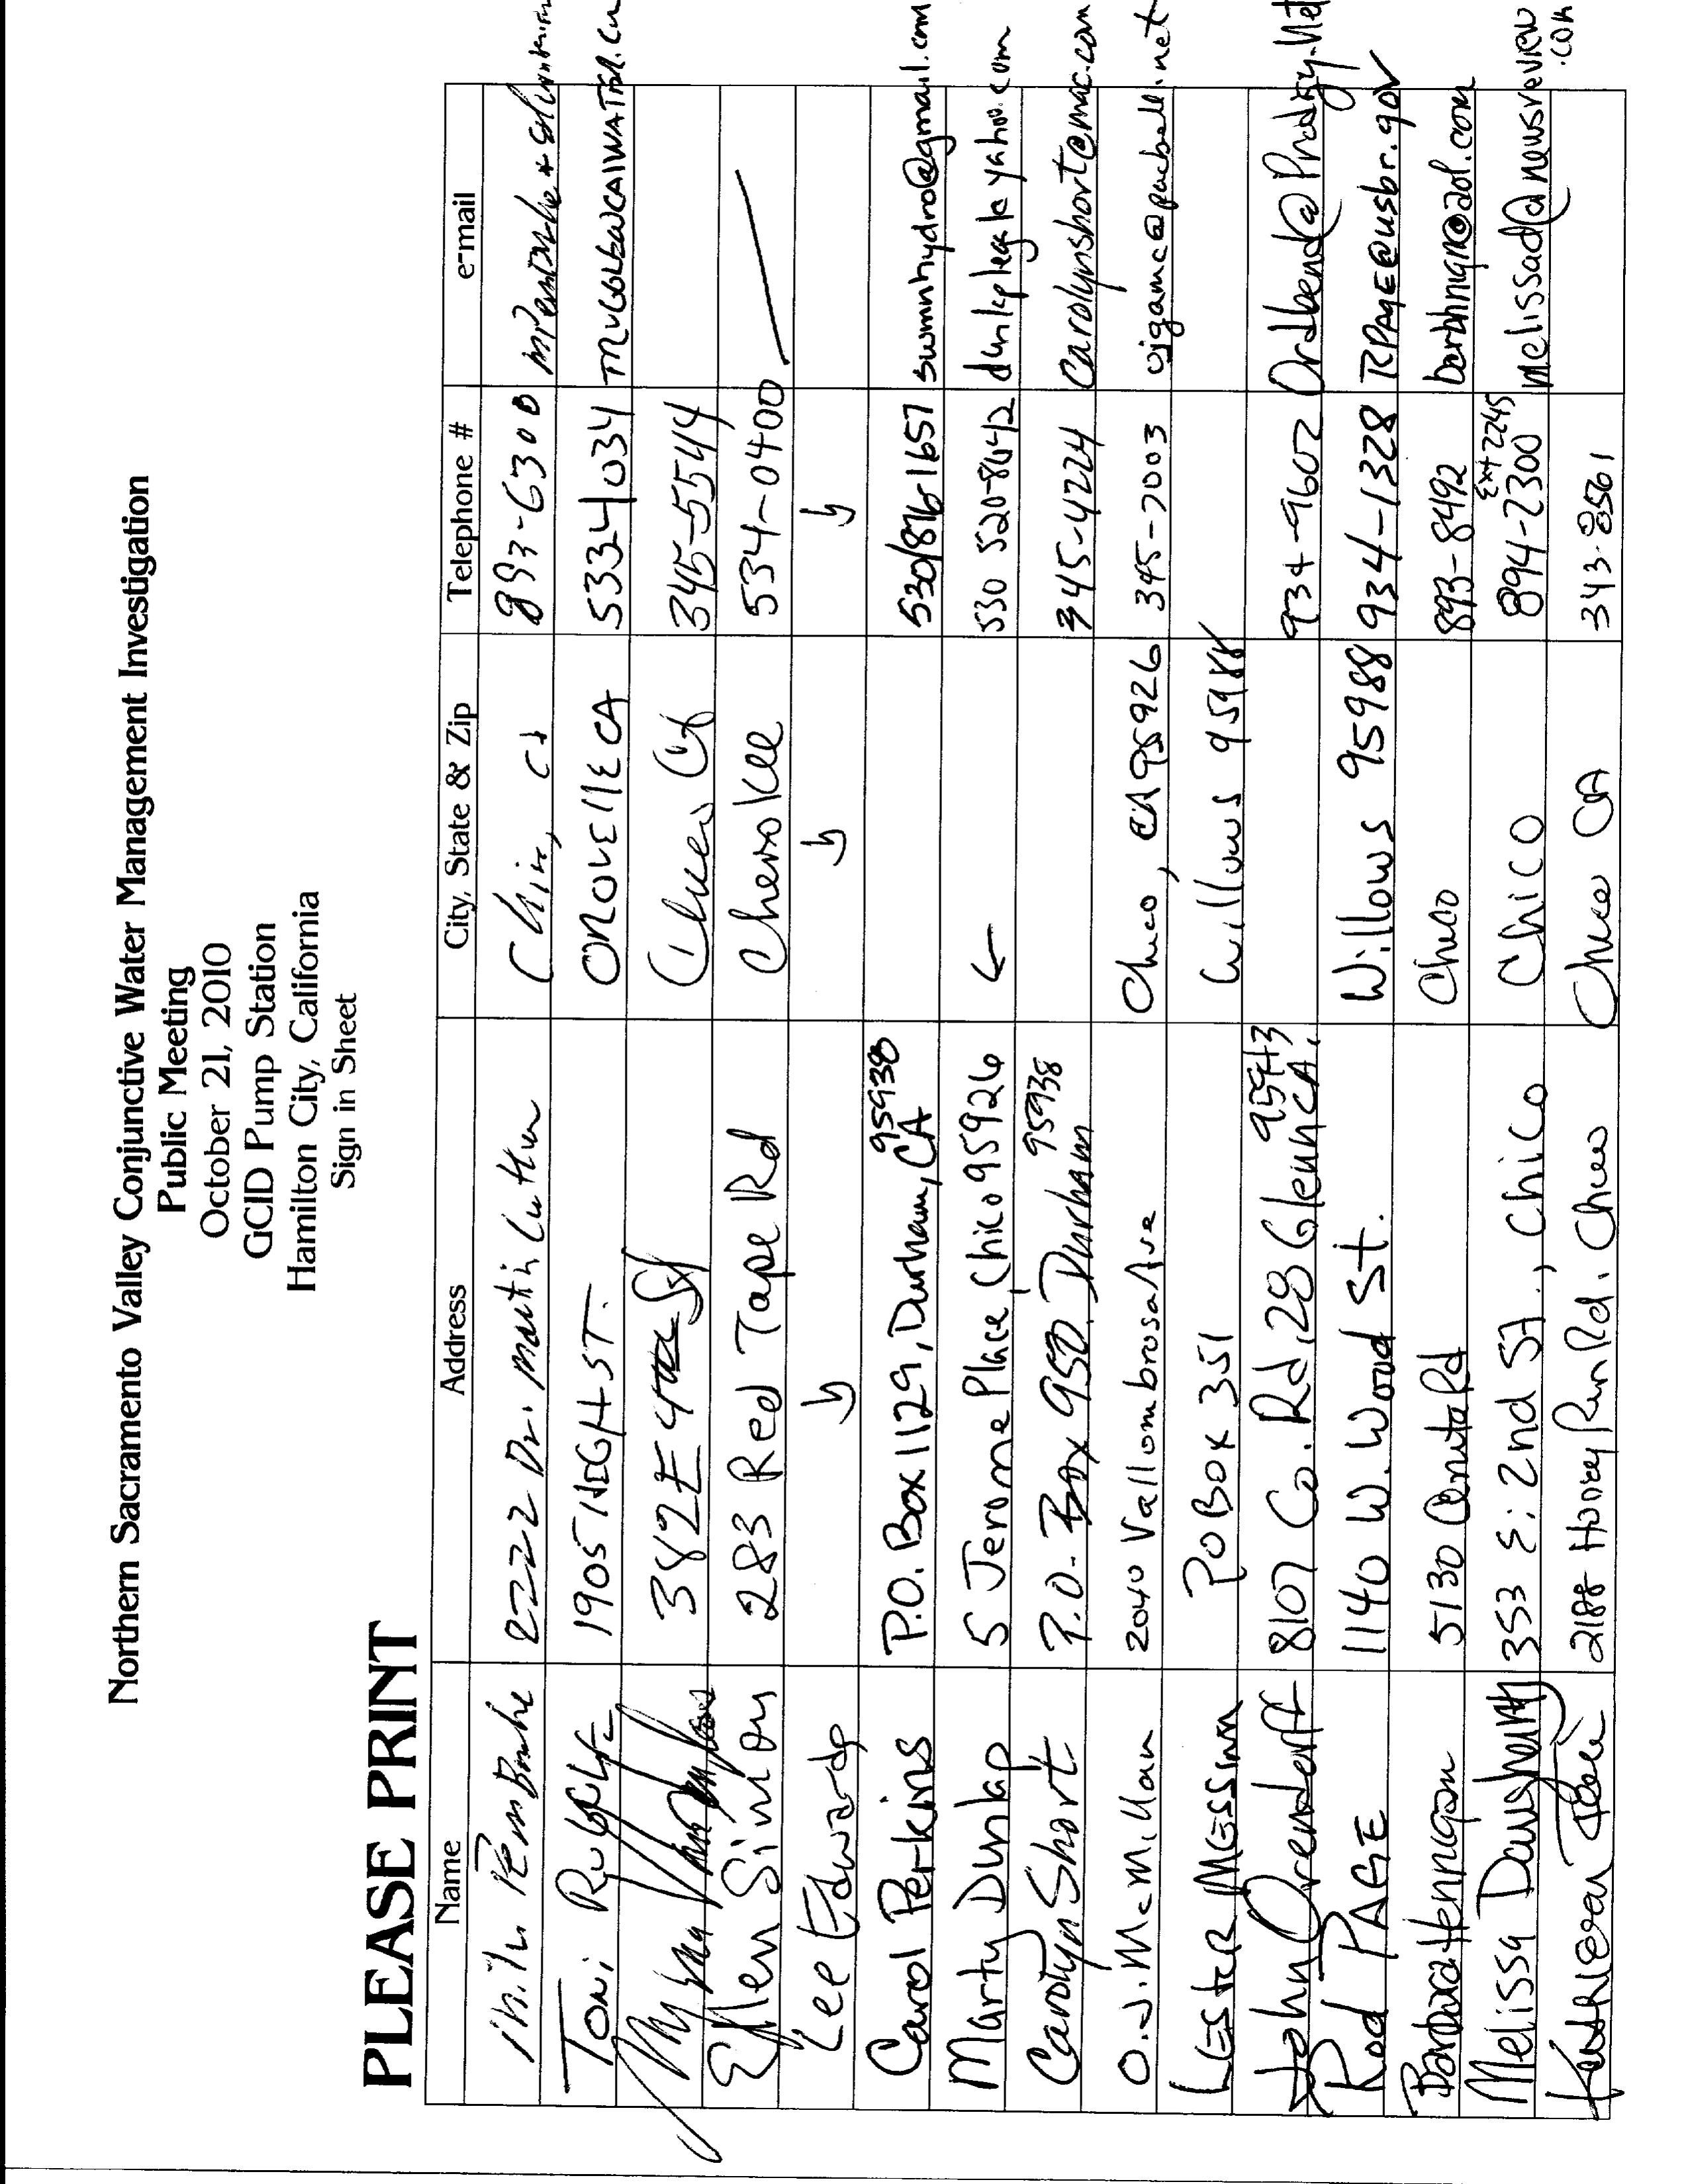 Northern Sacramento Valley Conjunctive Water Management Investigation
Public Meeting
October 21, 2010
GCID Pump Station
Hamilton City, California
Sign in Sheet
PLEASE PRINT
Name Address City, State & Zip Telephone # e-mail
2222 Dr. Martin Luther 893-6300
Toni 1905 HIGH ST. 5334034
382 E 345-5544
Ellen Simon 283 Red Tape Rd Cherokee 534-0400
Lee Edwards
Carol Perkins P.O. Box 1129, Durham, CA 95938 530/8761657 swmnhydro@gmail.com
Marty Dunlap 5 Jerome Place, Chico 95926 ← 530 520-8642
Carolyn Short P.O. Box 950. Durham 95938 345-4224 carolynshort@mac.com
O.J. McMillan 2040 Vallombrosa Ave Chico, CA 95926 345-7003 ojgamc@pacbell.net
LEStER MESSINA PO BOX 351 Willows 95988
John Orendorff 8107 Co. Rd, 28 Glenn CA. 95943 934-9602
Rod PAGE 1140 W. Wood St. Willows 95988 934-1328 RPAGE@usbr.gov
Barbara Hennigan 5130 Chico 893-8492 barbhngn@aol.com
Melissa Daugherty 353 E. 2nd St., Chico Chico 894-2300 Ext 2245 melissad@newsreview.com
2188 Honey Run Rd. Chico Chico CA 343-8561